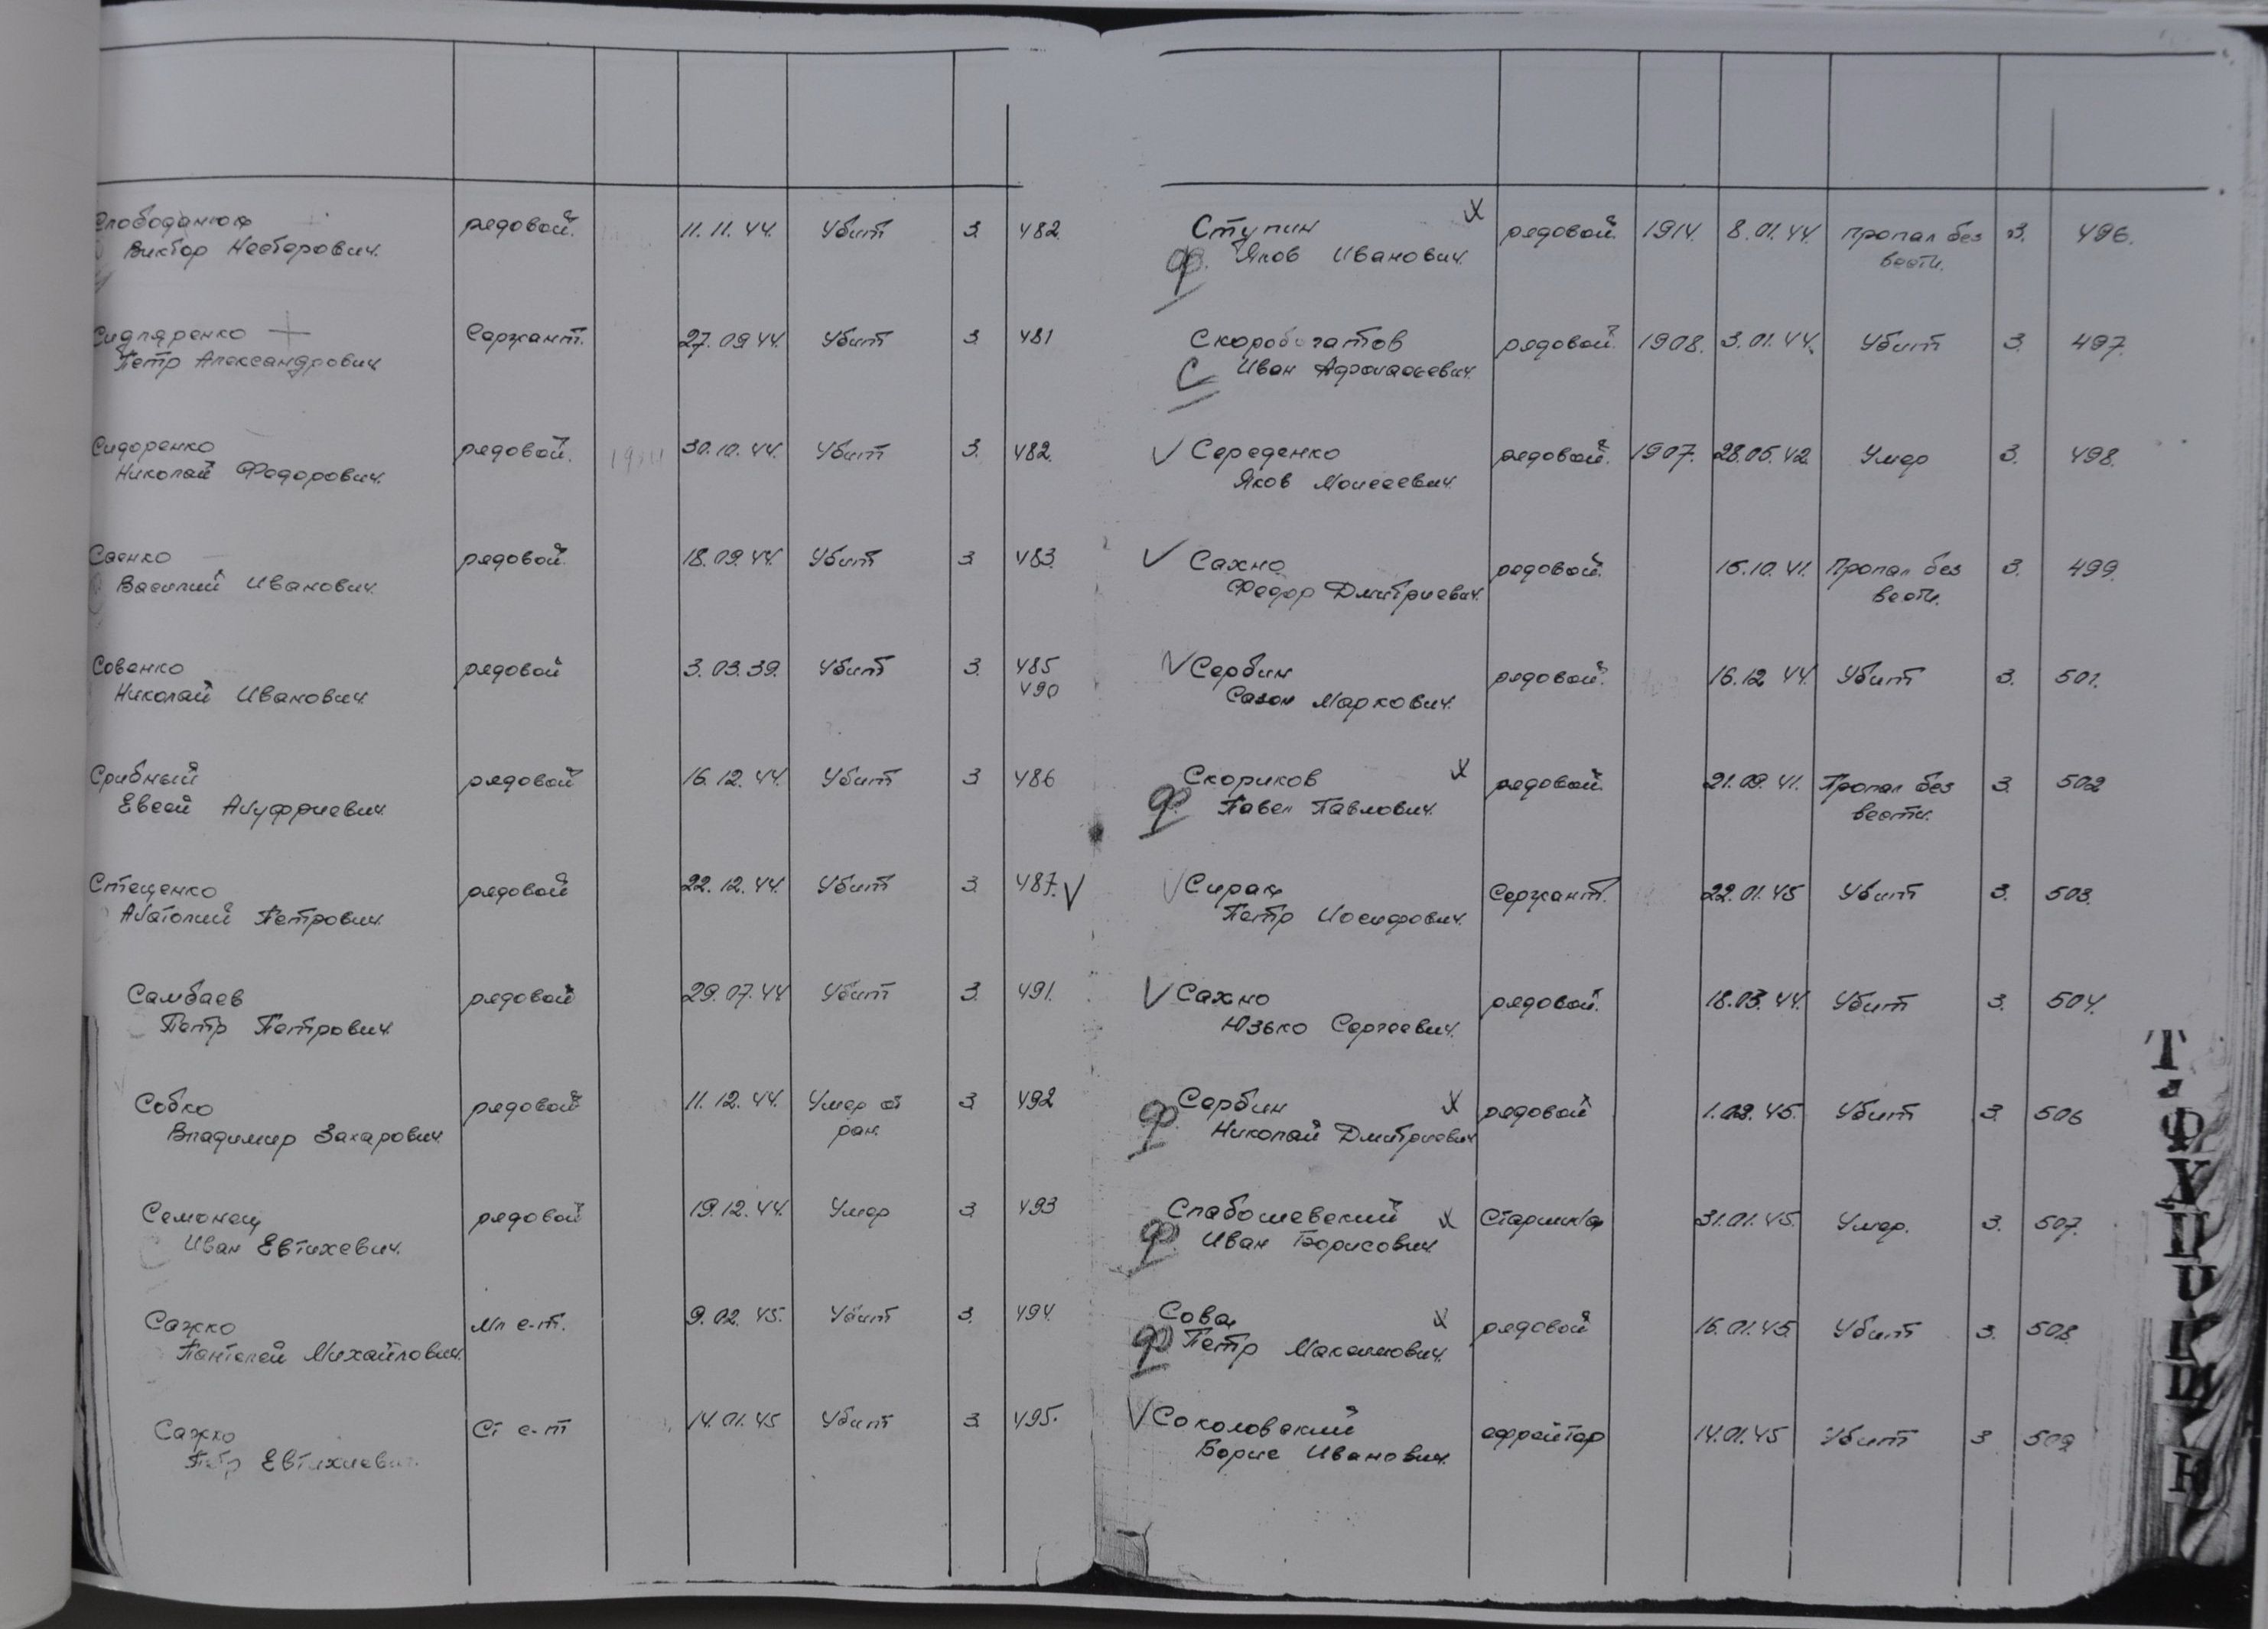 Слободанюк рядовой. 11.11.44. Убит 3. 482.
Виктор Нестерович.
Сидляренко Сержант. 27.09.44. Убит 3. 481
Петр Александрович
Сидоренко рядовой. 30.10.44. Убит 3. 482.
Николай Федорович.
Саенко рядовой. 18.09.44. Убит 3 483.
Василий Иванович.
Совенко рядовой 3.03.39. Убит 3. 485
Николай Иванович. 490
Срибный рядовой 16.12.44. Убит 3 486
Евсей Ануфриевич.
Стеценко рядовой 22.12.44. Убит 3. 487. V
Анатолий Петрович.
Самбаев рядовой 29.07.44 Убит 3. 491.
Петр Петрович.
Собко рядовой 11.12.44. Умер от 3. 492
Владимир Захарович. ран.
Семонец рядовой 19.12.44. Умер 3. 493
Иван Евтихевич.
Сажко Мл с-т. 9.02.45. Убит 3. 494.
Пантелей Михайлович.
Сажко Ст с-т 14.01.45 Убит 3. 495.
Петр Евтихиевич.
Ступин х рядовой. 1914. 8.01.44. пропал без 3. 496.
ф. Яков Иванович. вести.
Скоробогатов рядовой. 1908. 3.01.44. Убит 3. 497.
С Иван Афонасиевич.
V Середенко рядовой. 1907. 28.05.42. Умер 3. 498.
Яков Моисеевич.
V Сахно рядовой. 15.10.41. Пропал без 3. 499.
Федор Дмитриевич. вести.
V Сербин рядовой. 16.12.44. Убит 3. 501.
Сазон Маркович.
Скориков х рядовой. 21.09.41. Пропал без 3. 502
ф. Павел Павлович. вести.
V Сирац Сержант. 22.01.45 Убит 3. 503.
Петр Иосифович.
V Сахно рядовой. 18.03.44. Убит 3. 504.
Юзько Сергеевич.
Сербин х рядовой 45. Убит 3. 506
ф. Николай Дмитриевич
Слабошевский х Старшина 31.01.45. Умер. 3. 507.
ф. Иван Борисович.
Сова х рядовой 16.01.45. Убит 3. 508.
ф Петр Максимович.
V Соколовский ефрейтор 14.01.45 Убит 3 509
Борис Иванович.
Т
Ф
Х
Ц